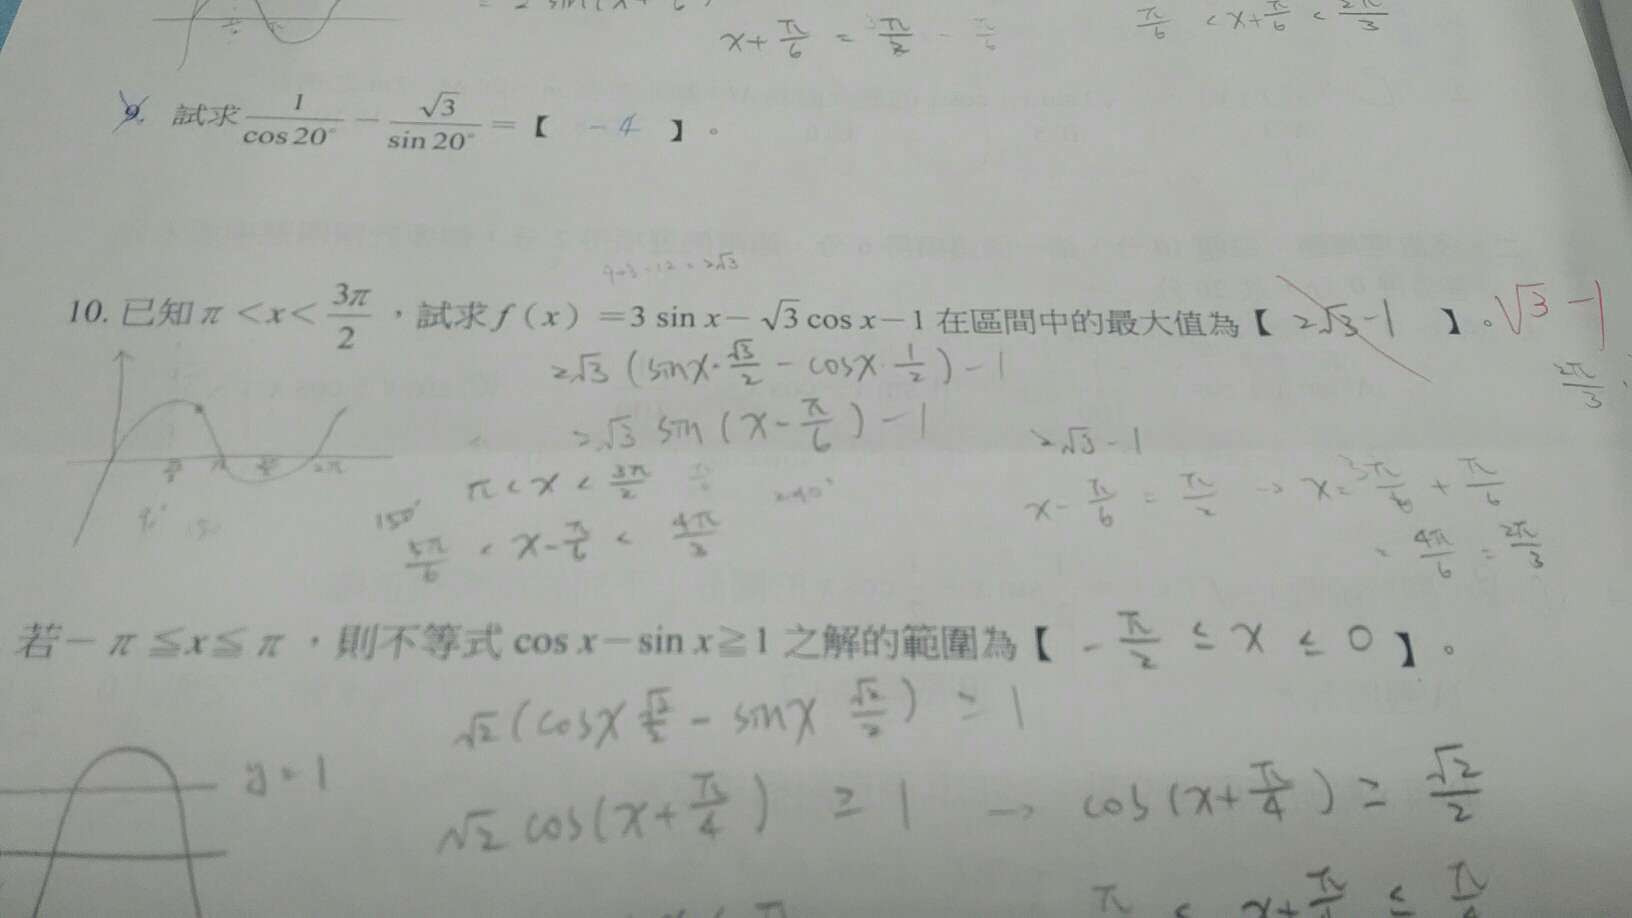 x+π/6 = 3π/2 - π/6
π/6 < x+π/6 < 2π/3
9. 試求 1/cos20° − √3/sin20° =【 -4 】。
9+3=12=2√3
10. 已知π<x<3π/2，試求f(x)=3 sin x−√3 cos x−1在區間中的最大值為【 2√3-1 】。√3-1
2√3 (sinx·√3/2 - cosx·1/2) - 1
2π/3
2√3 sin (x-π/6) - 1
2√3-1
π < x < 3π/2
240°
x-π/6 = π/2 → x= 3π/6 + π/6
150°
5π/6 < x-π/6 < 4π/3
= 4π/6 = 2π/3
若−π≦x≦π，則不等式 cos x−sin x≧1 之解的範圍為【 -π/2 ≤ x ≤ 0 】。
√2 (cosx √2/2 - sinx √2/2) ≥ 1
y=1
√2 cos(x+π/4) ≥ 1 → cos(x+π/4) ≥ √2/2